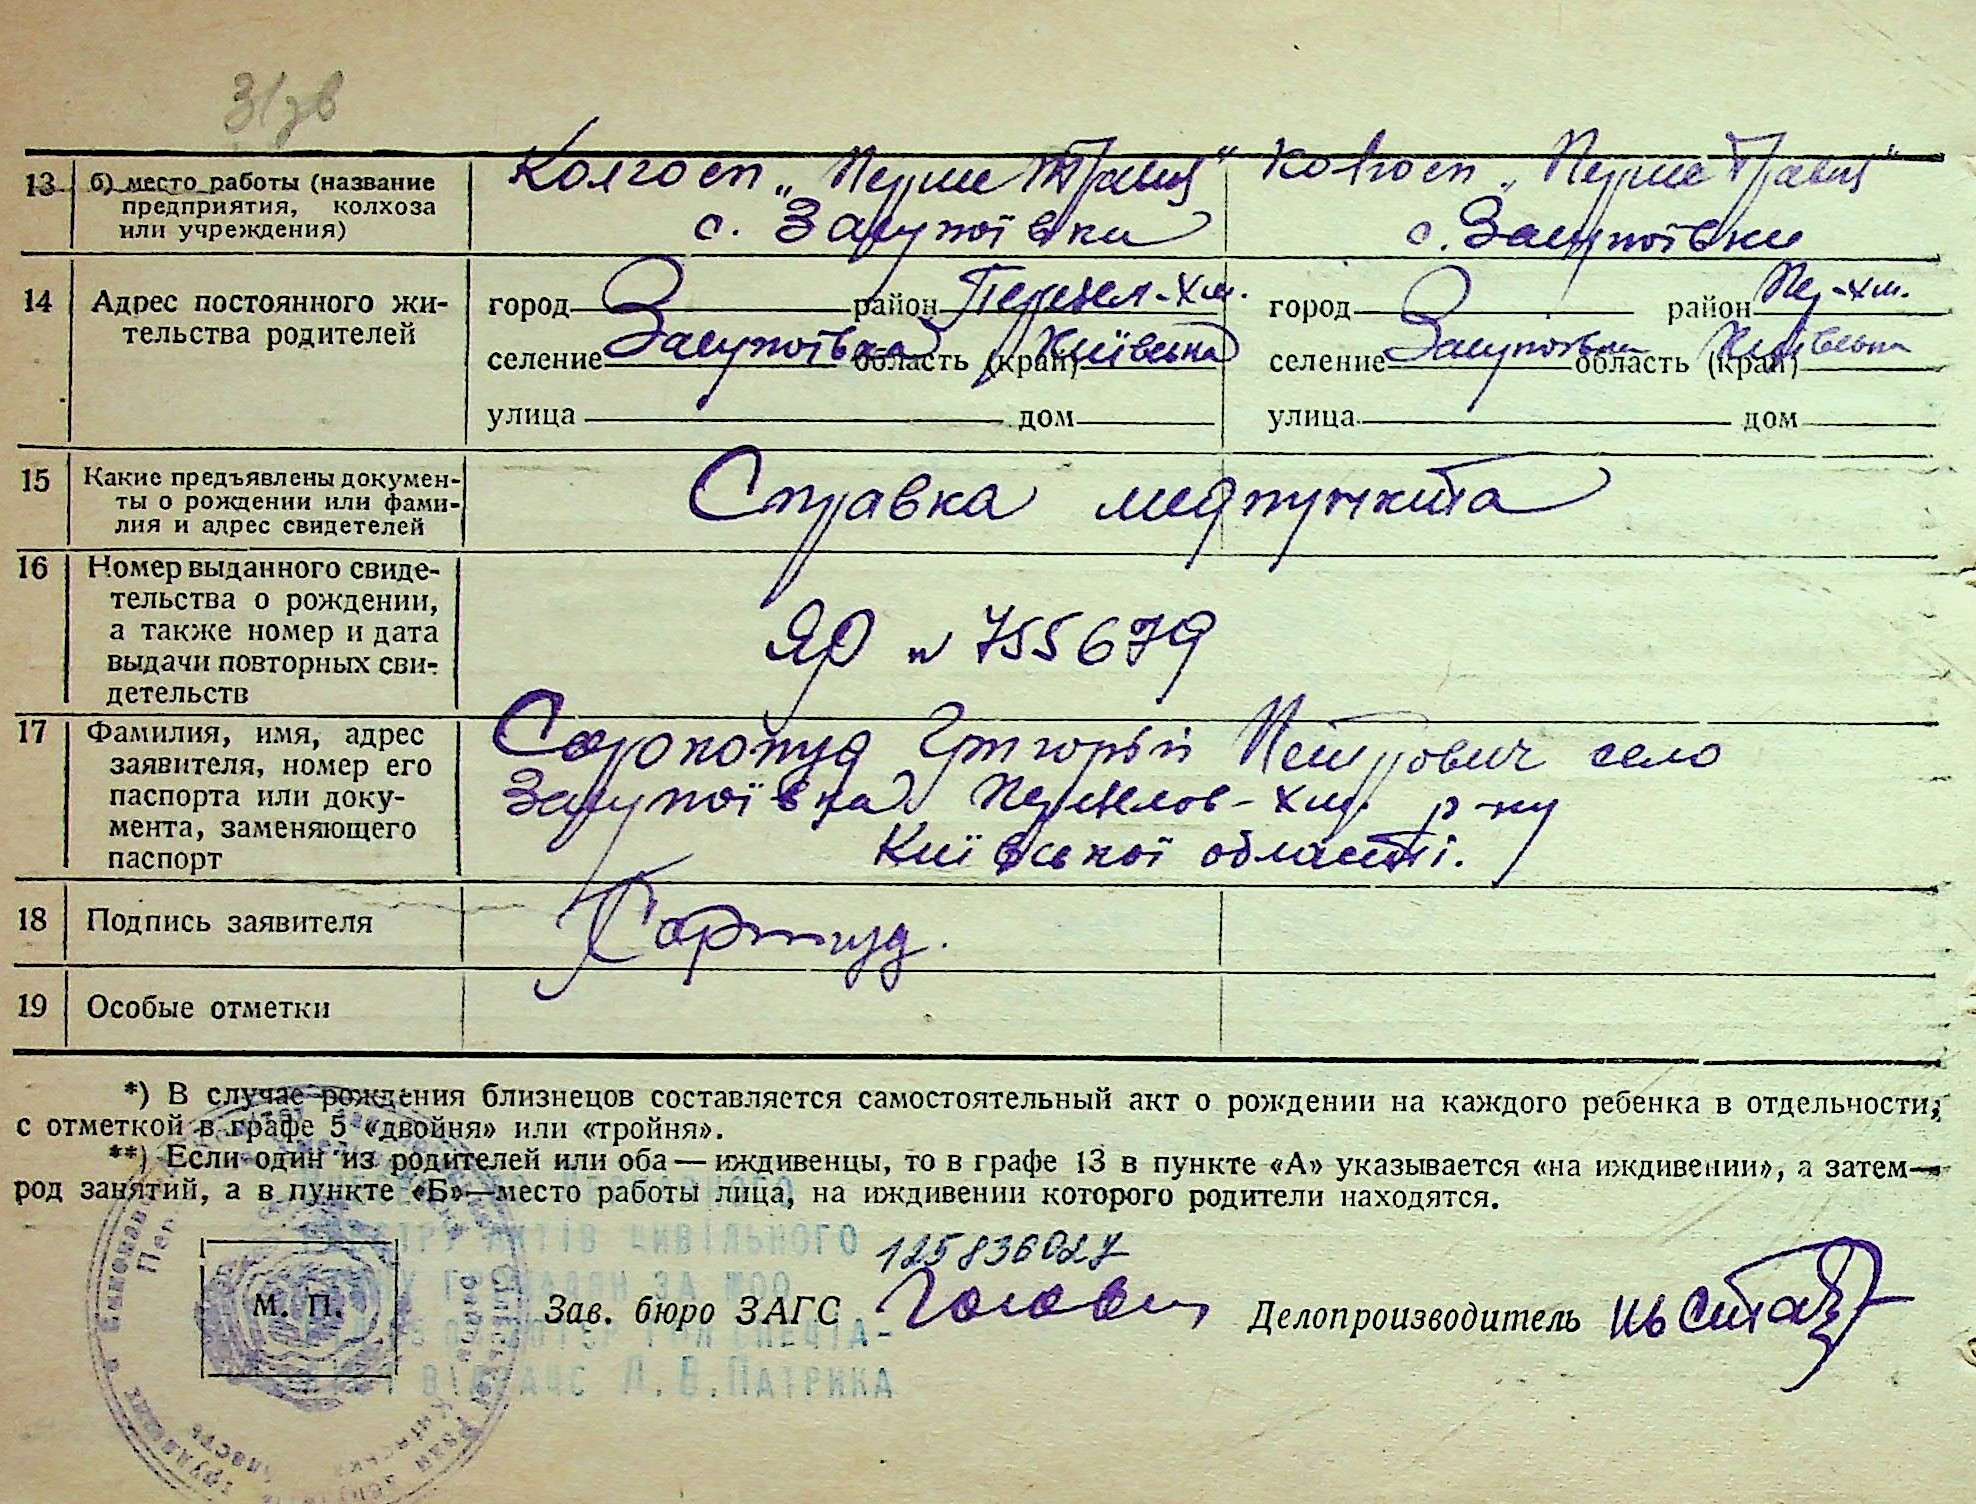 13 б) место работы (название Колгосп „Перше Травня" Колгосп „Перше Травня"
предприятия, колхоза с. Засупоївки с. Засупоївки
или учреждения)
14 Адрес постоянного жи- город район Переял-Хм. город район Пер-Хм.
тельства родителей
селение Засупоївка область (край) Київська селение Засупоївка область (край) Київська
улица дом улица дом
15 Какие предъявлены докумен-
ты о рождении или фами- Справка медпункта
лия и адрес свидетелей
16 Номер выданного свиде-
тельства о рождении,
а также номер и дата ЯО № 755679
выдачи повторных сви-
детельств
17 Фамилия, имя, адрес Сорокопуд Григорій Петрович село
заявителя, номер его
паспорта или доку- Засупоївка Переялов-Хм. р-ну
мента, заменяющего Київської області.
паспорт
18 Подпись заявителя
19 Особые отметки
*) В случае рождения близнецов составляется самостоятельный акт о рождении на каждого ребенка в отдельности,
с отметкой в графе 5 «двойня» или «тройня».
**) Если один из родителей или оба — иждивенцы, то в графе 13 в пункте «А» указывается «на иждивении», а затем—
род занятий, а в пункте «Б»—место работы лица, на иждивении которого родители находятся.
АКТІВ ЦИВІЛЬНОГО
12583602
ГРОМАДЯН ЗА №00
М. П. Зав. бюро ЗАГС Делопроизводитель
Л.В.ПАТРИКА